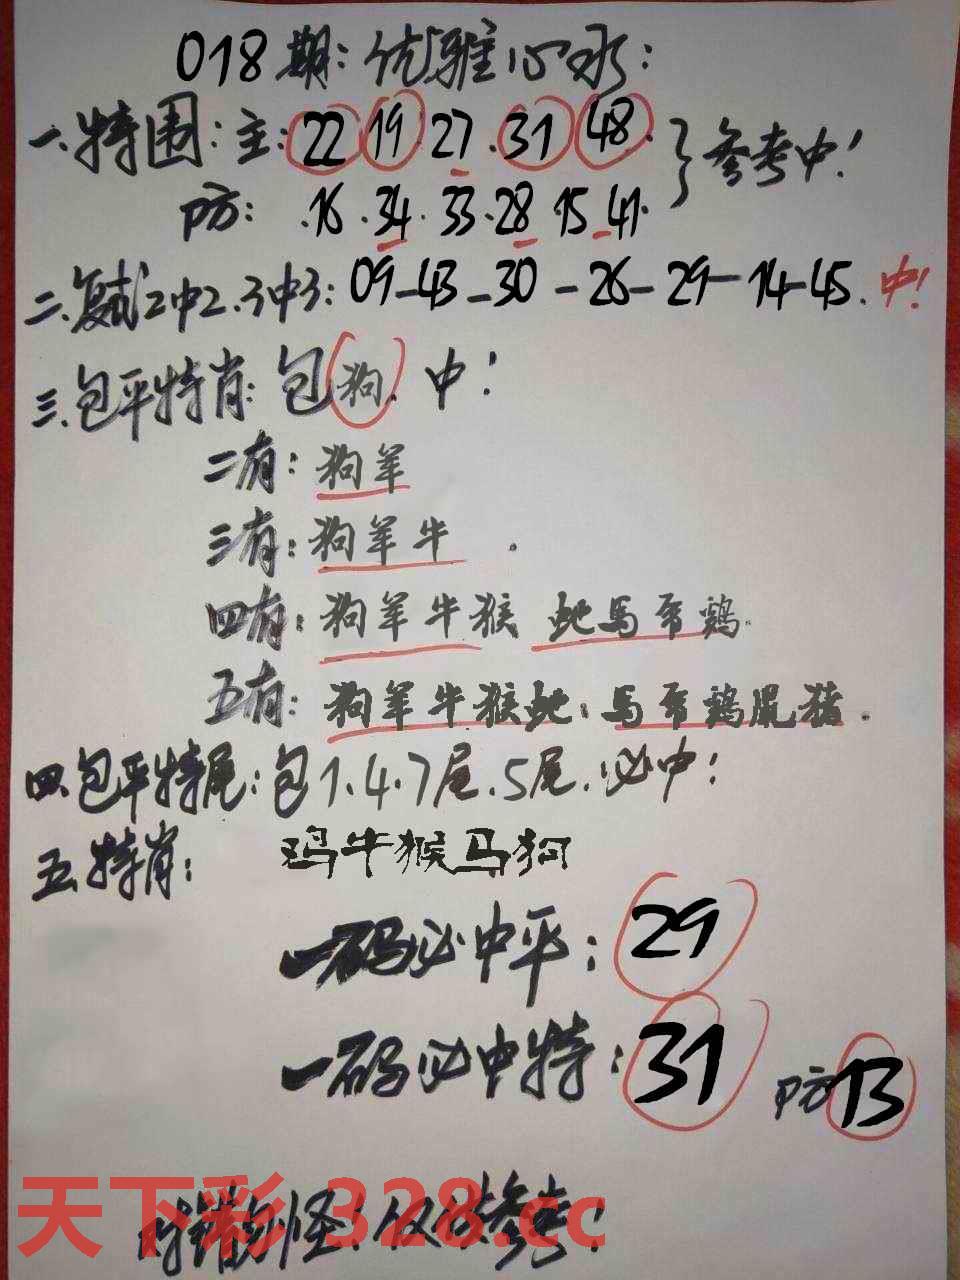 018期:优雅心水:
一.特围:主:22 19 27.31 48. }参考中!
防: .16.34.33.28 15 41.
二.复式2中2.3中3:09-43-30-26-29-14-45.中!
三.包平特肖:包狗.中!
二有:狗羊
三有:狗羊牛.
四有:狗羊牛猴 蛇馬兔鷄.
五有:狗羊牛猴蛇.馬兔鷄鼠猪.
四.包平特尾:包1.4.7尾.5尾.必中!
五.特肖: 鸡牛猴马狗
一码必中平:29
一码必中特:31 防13
对错勿怪!仅供参考!
天下彩 328.cc